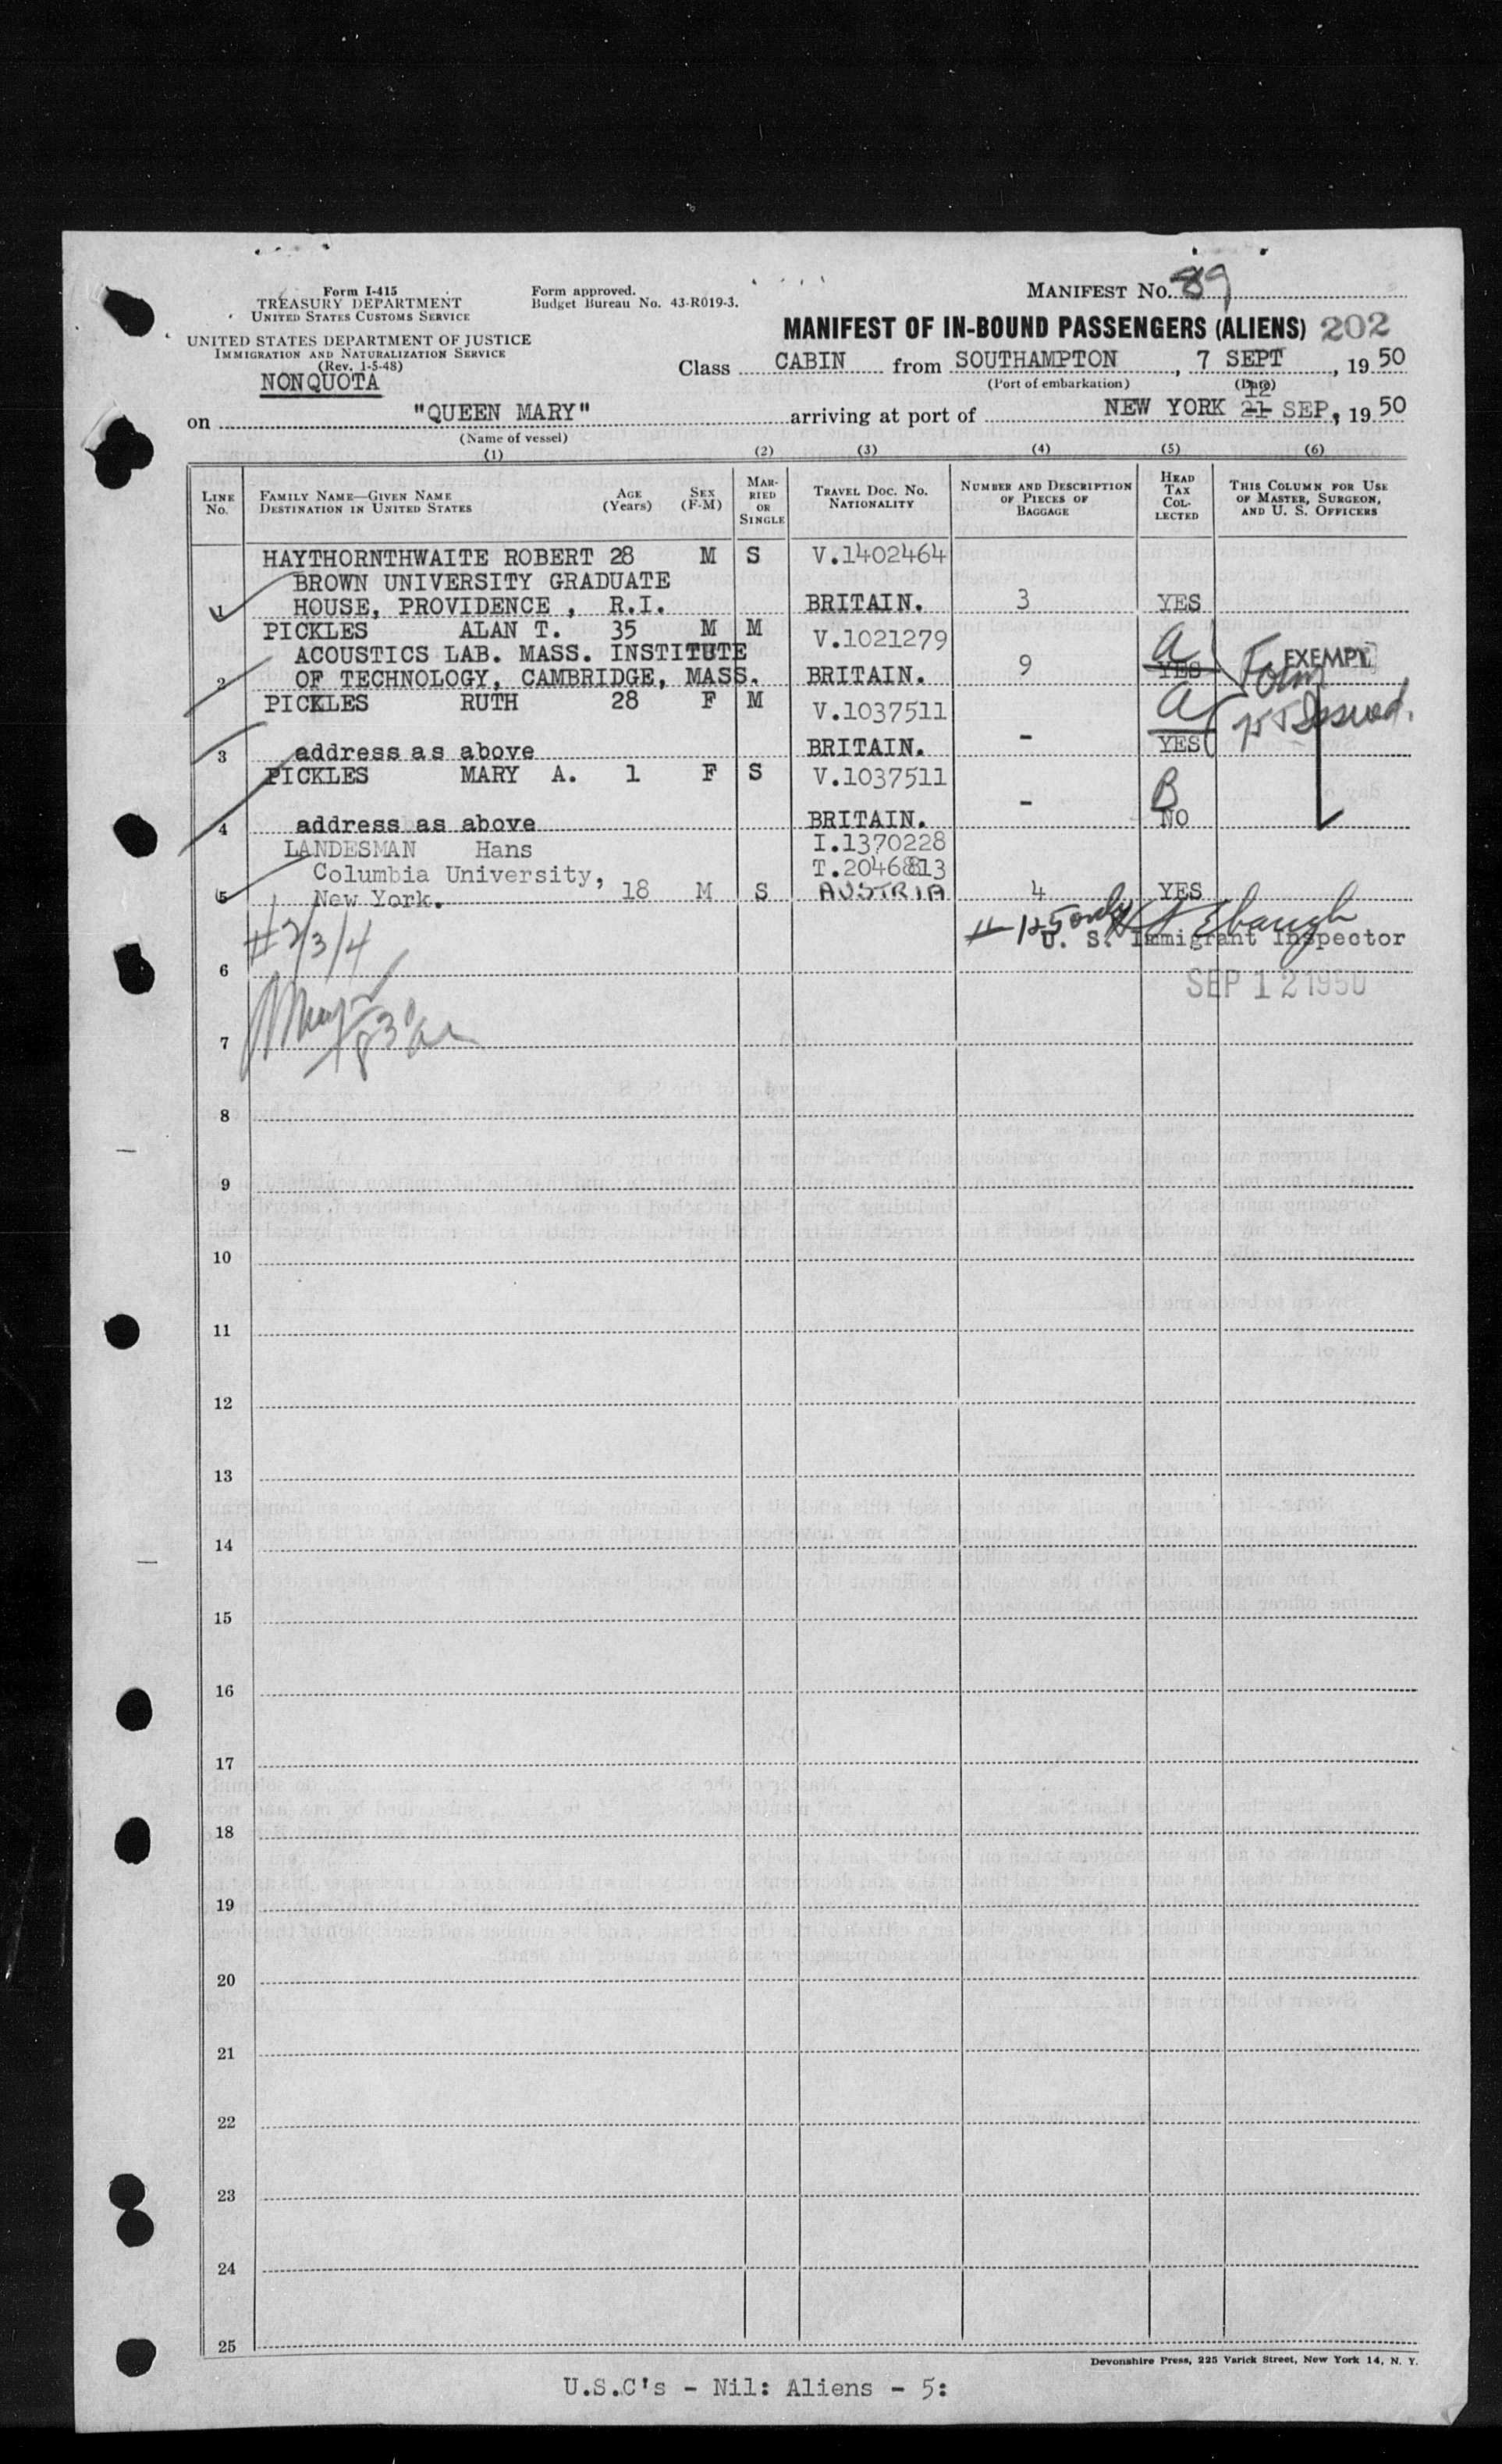 Form I-415
TREASURY DEPARTMENT
UNITED STATES CUSTOMS SERVICE
UNITED STATES DEPARTMENT OF JUSTICE
IMMIGRATION AND NATURALIZATION SERVICE
(Rev. 1-5-48)
NONQUOTA
Form approved.
Budget Bureau No. 43-R019-3.
MANIFEST NO. 89
MANIFEST OF IN-BOUND PASSENGERS (ALIENS) 202
Class CABIN from SOUTHAMPTON, 7 SEPT, 1950
(Port of embarkation) (Date)
12
on "QUEEN MARY" arriving at port of NEW YORK 21 SEP, 1950
(Name of vessel)
(1) (2) (3) (4) (5) (6)
LINE No. FAMILY NAME—GIVEN NAME DESTINATION IN UNITED STATES AGE (Years) SEX (F-M) MARRIED OR SINGLE TRAVEL DOC. NO. NATIONALITY NUMBER AND DESCRIPTION OF PIECES OF BAGGAGE HEAD TAX COLLECTED THIS COLUMN FOR USE OF MASTER, SURGEON, AND U. S. OFFICERS
HAYTHORNTHWAITE ROBERT 28 M S V.1402464
BROWN UNIVERSITY GRADUATE
1 HOUSE, PROVIDENCE, R.I. BRITAIN. 3 YES
PICKLES ALAN T. 35 M M V.1021279 a
ACOUSTICS LAB. MASS. INSTITUTE EXEMPT
2 OF TECHNOLOGY, CAMBRIDGE, MASS. BRITAIN. 9 YES Form
PICKLES RUTH 28 F M V.1037511 a Issued.
3 address as above BRITAIN. - YES
PICKLES MARY A. 1 F S V.1037511 B
4 address as above BRITAIN. - NO
LANDESMAN Hans I.1370228
Columbia University, T.2046813
5 New York. 18 M S AUSTRIA 4 YES
#2/3/4 # 1+5 only Ebaugh
U. S. Immigrant Inspector
6
SEP 12 1950
7
8
9
10
11
12
13
14
15
16
17
18
19
20
21
22
23
24
25
Devonshire Press, 225 Varick Street, New York 14, N. Y.
U.S.C's - Nil: Aliens - 5: